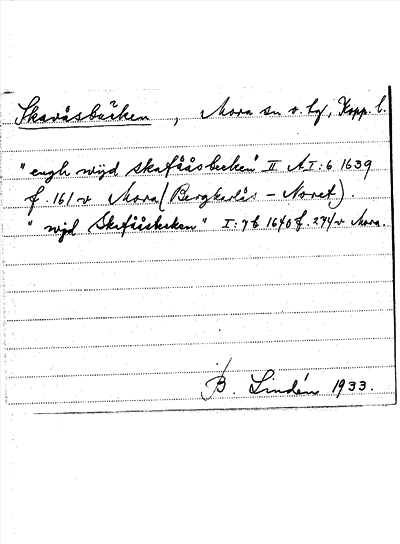 Skavåsbäcken, Mora sn o. hd, Kopp. l.
"engh wijd skafåås becken" II A I:6 1639
f. 161 v Mora (Bergkarlås - Noret).
" wijd Skafååsbecken" I:7b 1640 f. 274 v Mora.
B. Lindén 1933.